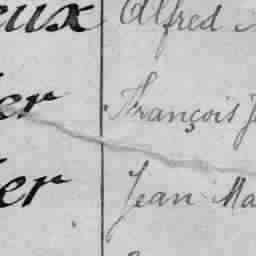 eux Alfred
er François J
er Jean Ma